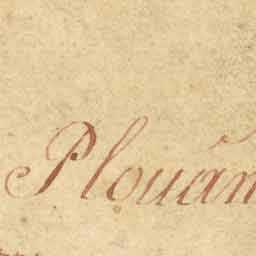 Plouán